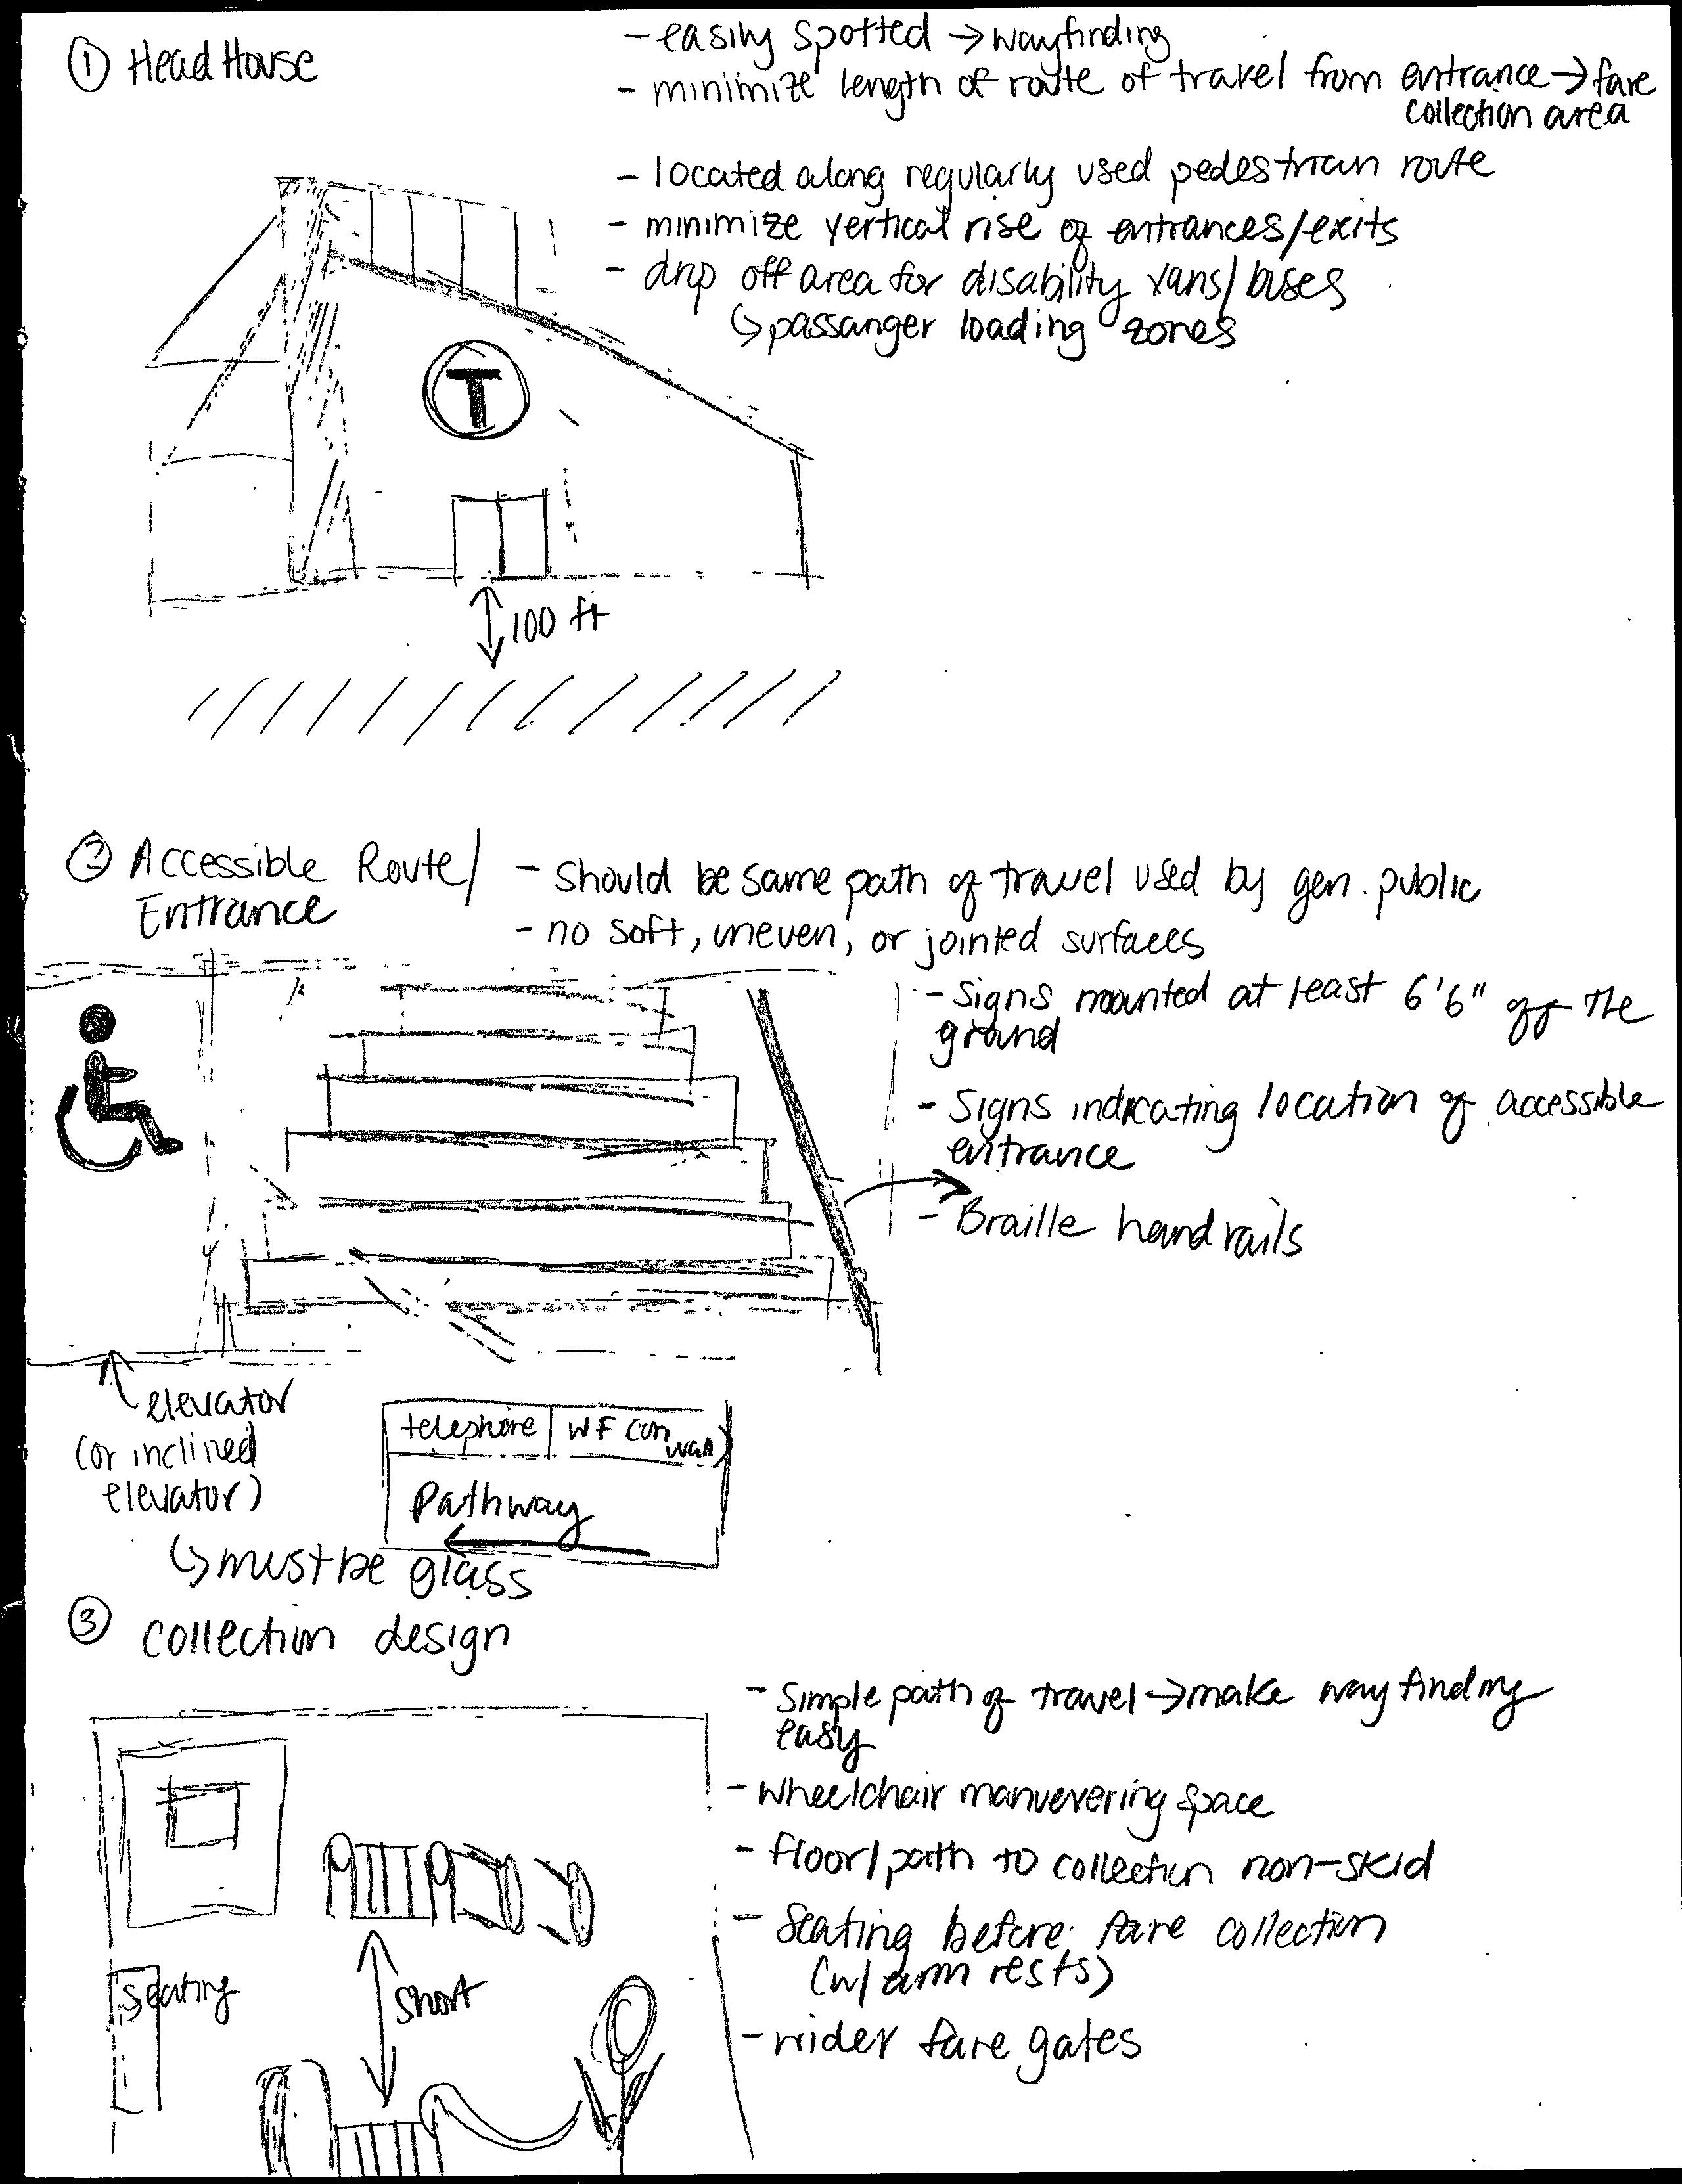 ① Head House
- easily spotted → wayfinding
- minimize length of route of travel from entrance → fare
collection area
- located along regularly used pedestrian route
- minimize vertical rise of entrances/exits
- drop off area for disability vans/buses
↳ passanger loading zones
T
100 ft
② Accessible Route/
Entrance
- should be same path of travel used by gen. public
- no soft, uneven, or jointed surfaces
- signs mounted at least 6'6" off the
ground
- signs indicating location of accessible
entrance
- Braille handrails
elevator
(or inclined
elevator)
↳ must be glass
telephone | WF (on
wall)
Pathway
③ collection design
- simple path of travel → make wayfinding
easy
- wheelchair manuevering space
- floor/path to collection non-skid
- seating before fare collection
(w/ arm rests)
- wider fare gates
seating
short